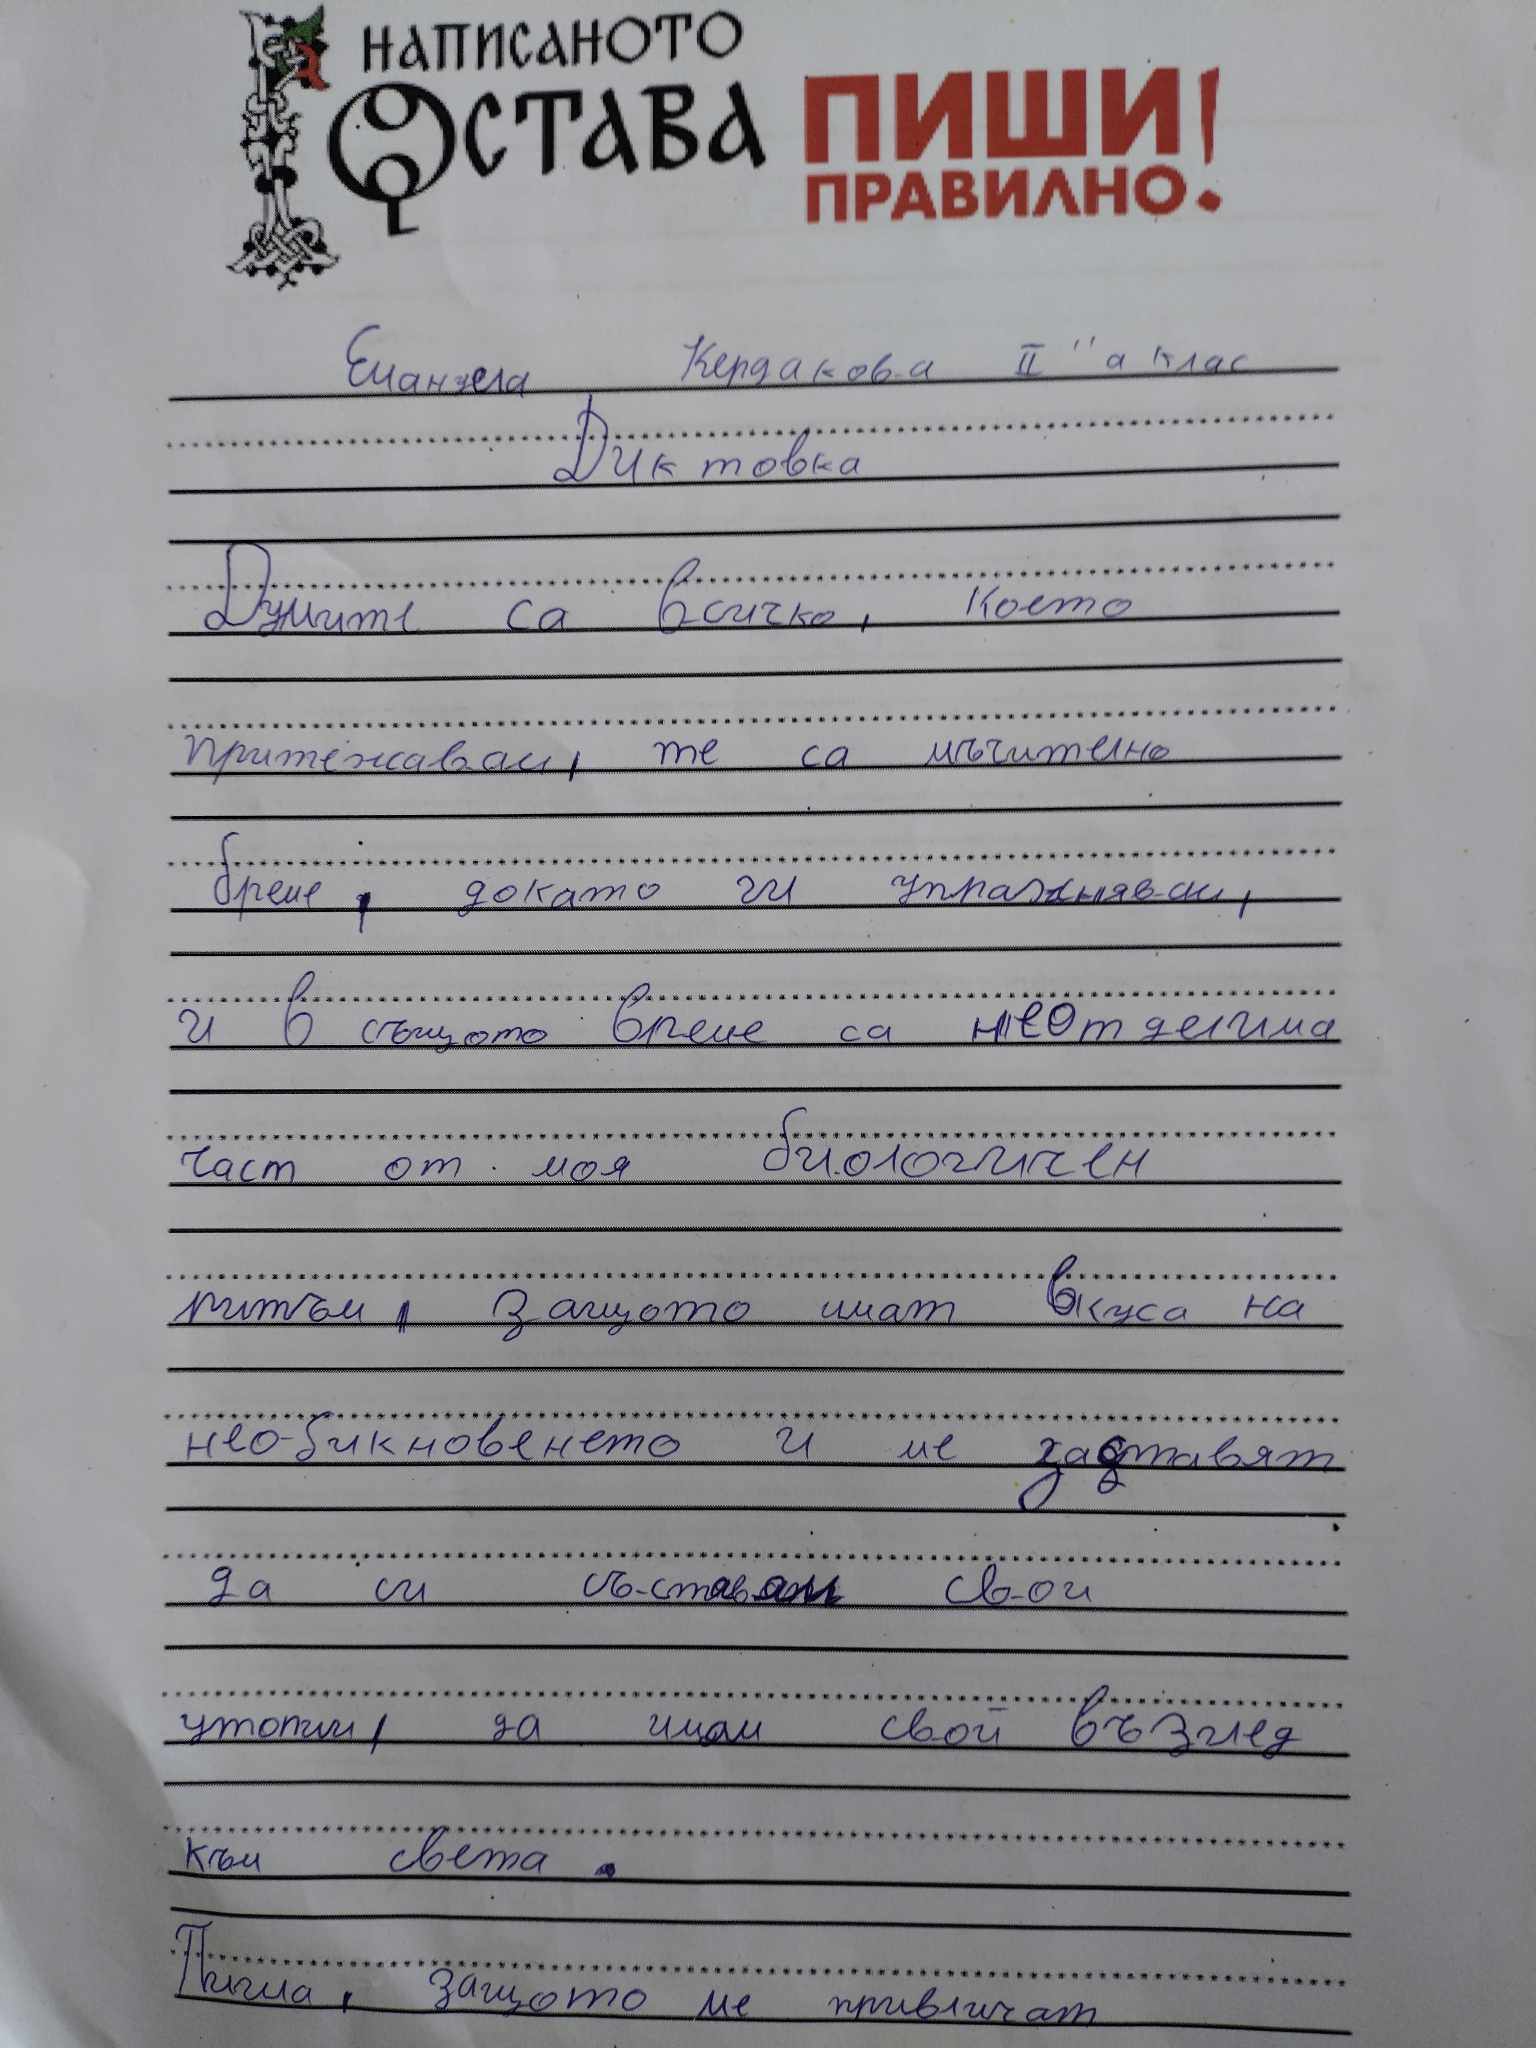 НАПИСАНОТО
ОСТАВА
ПИШИ
ПРАВИЛНО!
Емануела Кердакова II "а клас
Диктовка
Думите са всичко, което
притежавам, те са мъчително
бреме, докато ги упражнявам,
и в същото време са неотделима
част от моя биологичен
ритъм, защото имат вкуса на
необикновенето и ме заставят
да си съставям свои
утопии, да имам свой възглед
към света.
Пиша, защото ме привличат